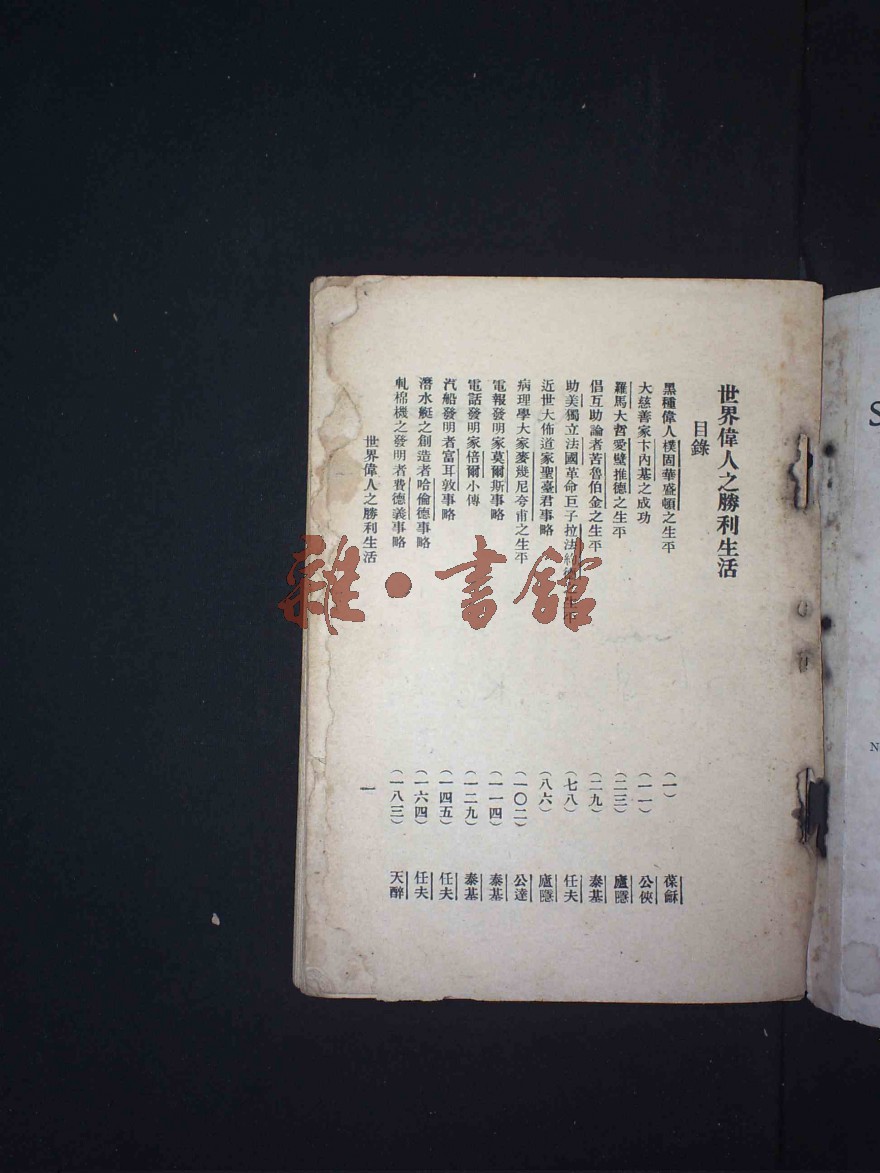 世界偉人之勝利生活
目錄
黑種偉人樸固華盛頓之生平 (一) 葆龢
大慈善家卞內基之成功 (一一) 公俠
羅馬大哲愛壁推德之生平 (二三) 廬隱
倡互助論者苦魯伯金之生平 (二九) 泰基
助美獨立法國革命巨子拉法 之生平 (七八) 任夫
近世大佈道家聖臺君事略 (八六) 廬隱
病理學大家麥幾尼夸甫之生平 (一〇二) 公達
電報發明家莫爾斯事略 (一一四) 泰基
電話發明家倍爾小傳 (一二九) 泰基
汽船發明者富耳敦事略 (一四五) 任夫
潛水艇之創造者哈倫德事略 (一六四) 任夫
軋棉機之發明者費德義事略 (一八三) 天醉
世界偉人之勝利生活 一
雜·書館
S
N